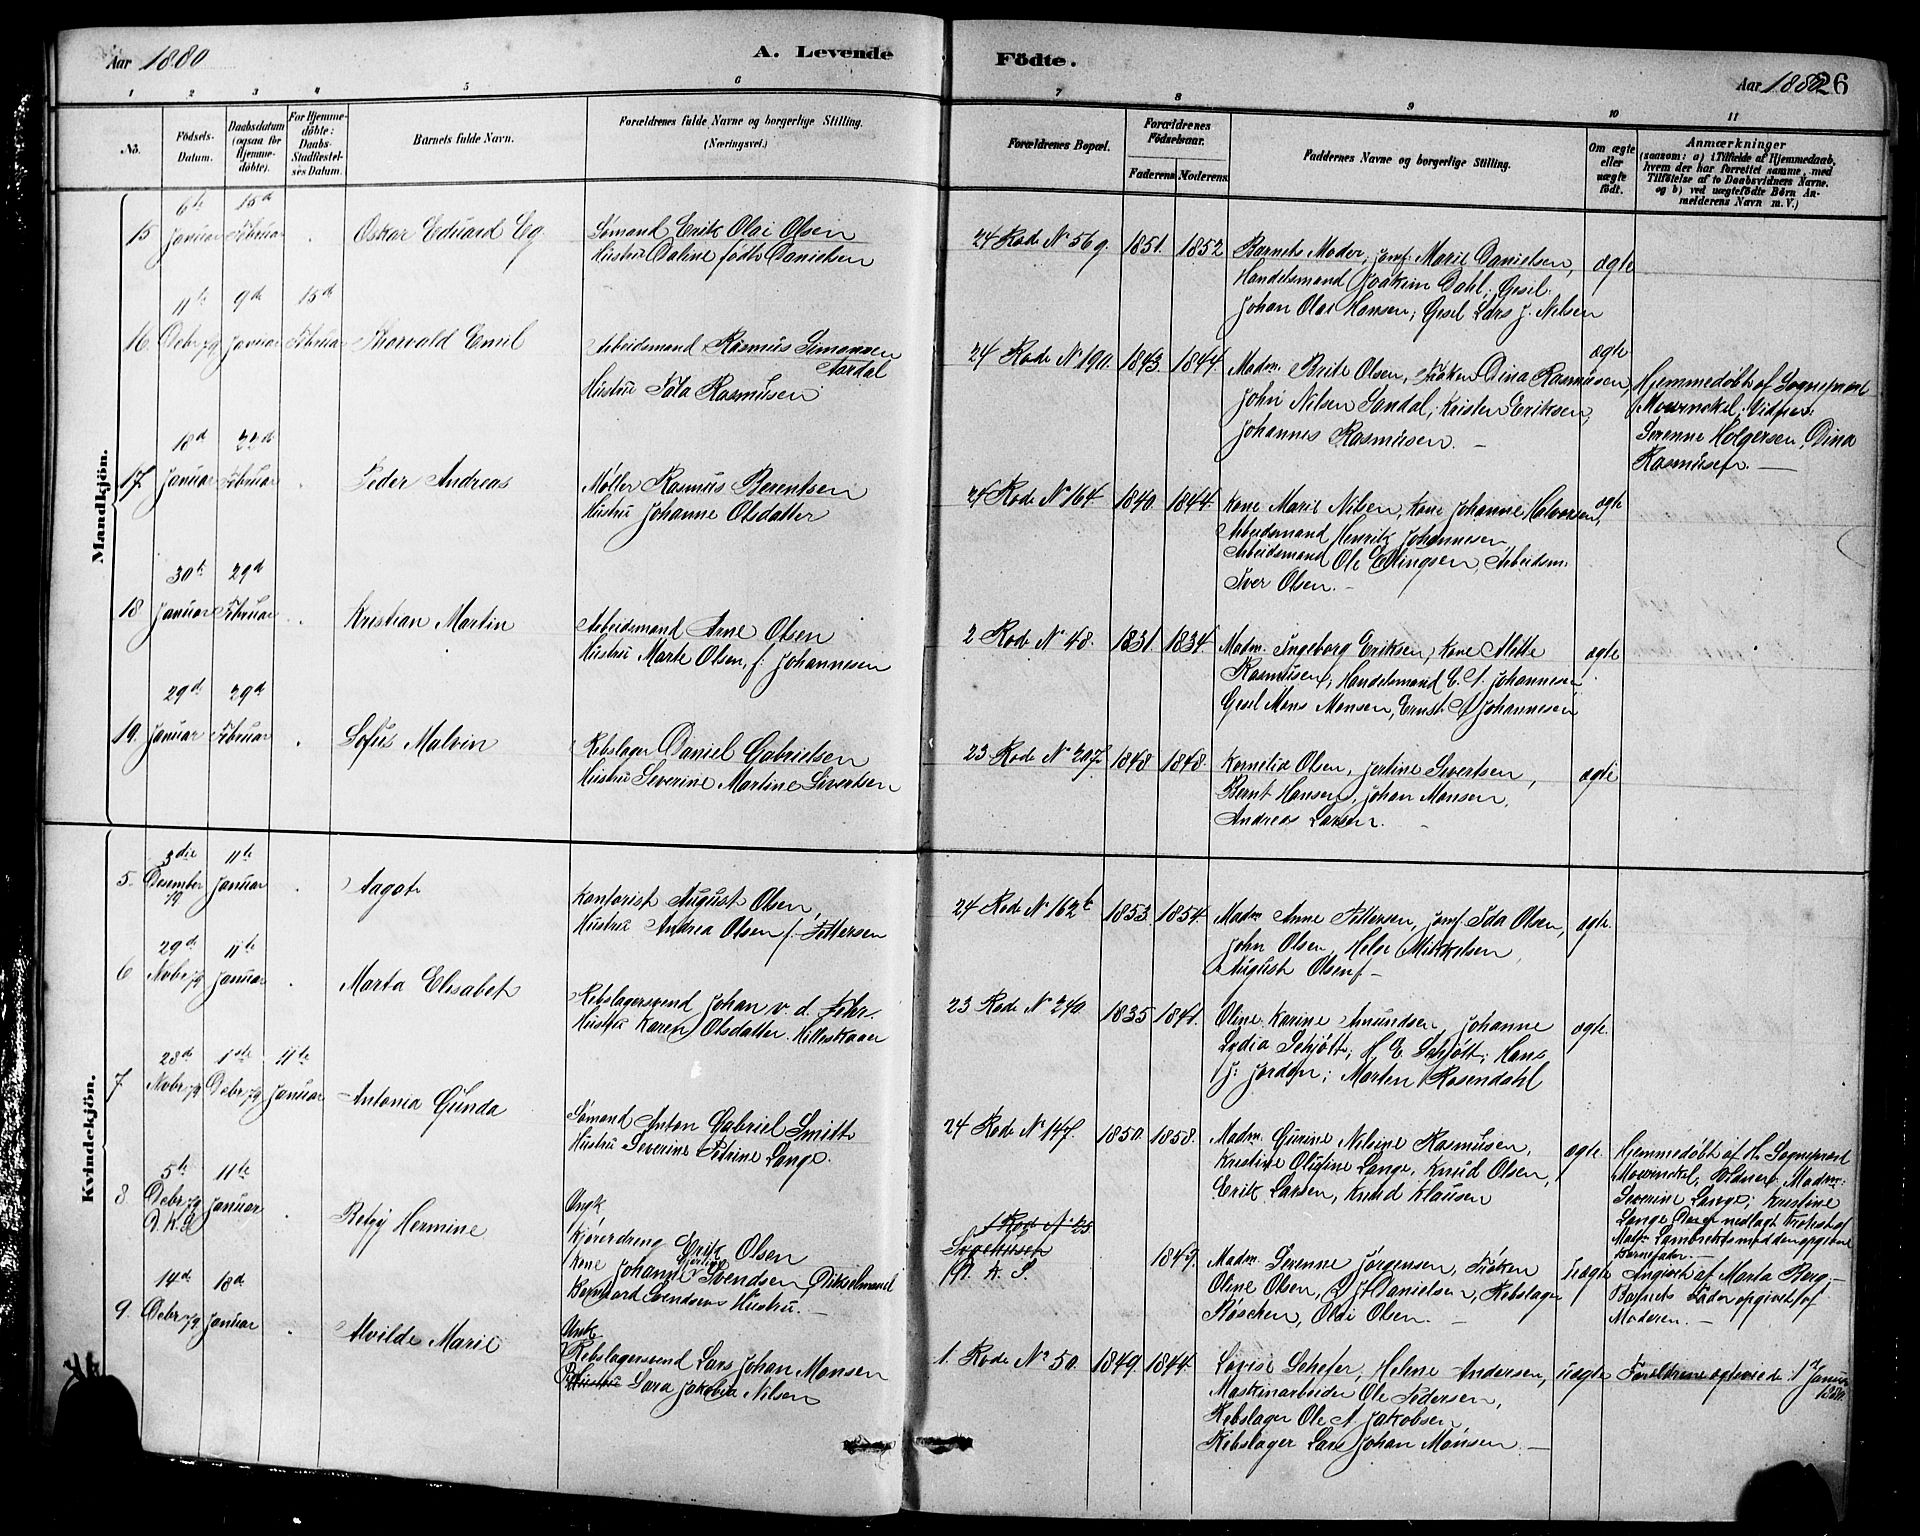 Aar 1880
A. Levende
Födte.
Aar 1880
26
1 2 3 4 5 6 7 8 9 10 11
No.
Födsels-
Datum.
Daabsdatum
(ogsaa for
Hjemme-
döbte).
For Hjemme-
döbte:
Daabs-
Stadfæstel-
ses Datum.
Barnets fulde Navn.
Forældrenes fulde Navne og borgerlige Stilling.
(Næringsvei.)
Forældrenes Bopæl.
Forældrenes
Födselsaar.
Faderens Moderens
Faddernes Navne og borgerlige Stilling.
Om ægte
eller
uægte
födt.
Anmærkninger
(saasom: a) i Tilfælde af Hjemmedaab,
hvem der har forrettet samme, med
Tilföielse af to Daabsvidners Navne.
og b) ved uægtefödte Börn An-
melderens Navn m. V.)
Mandkjön.
6te 15d
15 Januar Februar Oskar Eduard
Sømand Erik Olai Olsen
Hustru Daline født Danielsen
24 Rode No 569. 1851. 1852
Barnets Moder, jomf. Marie Danielsen,
Handelsmand Joakim Dahl, Gesel.
Johan Olai Hansen, Gesel Lars J. Nilsen
ægte
11te 9d 15d
16. Debr 79 Januar Februar Thorvald Emil
Arbeidsmand Rasmus Simonsen
Aardal
Hustru Rasmusen
24 Rode No 190. 1843. 1844.
Madm. Brite Olsen, Frøken Dina Rasmusen,
John Nilsen Sandal, Kristen Eriksen,
Johannes Rasmusen. —
ægte
Hjemmedøbt af Sogneprest
Mowinckel. Vidner:
Serenne Holgersen, Dina
Rasmusen. —
18d 22d
17. Januar Februar Peder Andreas
Møller Rasmus Berentsen
Hustru Johanne Olsdatter
24 Rode No 164. 1840. 1844.
Kone Marie Nilsen, Kone Johanne Halvorsen,
Arbeidsmand Henrik Johannesen,
Arbeidsmand Ole Ellingsen, Arbeidsm.
Iver Olsen. —
ægte
30te 29d
18 Januar Februar Kristian Martin
Arbeidsmand Arne Olsen
Hustru Marte Olsen, f. Johannesen
2 Rode No 48. 1831. 1834.
Madm. Ingeborg Eriksen, Kone Mette
Rasmusen, Handelsmand E. A. Johannesen
Gesel Mons Monsen, Ernst A Johannesen
ægte
29d 29d
19. Januar Februar Sofus Malvin
Rebslager Daniel Gabrielsen
Hustru Severine Martine Sivertsen
23 Rode No 207 1848 1848.
Kornelia Olsen, Jertine Sivertsen,
Bernt Hansen, Johan Monsen,
Andreas Larsen.
ægte
Kvindekjön.
3die 11te
5. Desember 79 Januar Aagot
Kontorist August Olsen,
Hustru Andrea Olsen f. Pettersen
24 Rode No 162 b 1853. 1854.
Madm Anne Pettersen, jomf. Ida Olsen,
John Olsen, Helge Mikkelsen,
August Olsen. —
ægte.
29d 11te
6 Novbr 79 Januar Marta Elisabet
Rebslagersvend Johan v. d. Fehr.
Hustru Karen Olsdatter Hilleskaar
23 Rode No 240 1835 1841.
Oline Karine Amundsen, Johanne
Lydia Schjøtt, H. E Schjøtt, Hans
J. Jordan; Morten Rosendahl
ægte.
28d 1ste 11te
7 Novbr 79 Debr 79 Januar Antonia Gunda
Sømand Anton Gabriel Smitt
Hustru Severine Petrine Lange.
24 Rode No 147. 1850. 1858.
Madm. Gurine Nilsine Rasmusen,
Kristine Olufine Lange, Knud Olsen,
Erik Larsen, Knud Klausen
ægte.
Hjemmedøbt af Hr. Sogneprest
Mowinckel, Vidner, Madm:
Severine Lange, Kristine
Lange
5te 11te
8 Debr 79 Januar Betzy Hermine
Ungk
Kjøredreng Erik Olsen
Kone Johanne Svendsen,
Bernhard Svendsens Hustru. —
1 Rode No 25
1849.
Madm. Serenne Jørgensen, Frøken
Oline Olsen, Danielsen, Rebslager
Røschen, Oldi Olsen. —
uægte
Angivet af Marta Berg. —
Barnets Fader opgivet af
Moderen. —
14d 18d
9. Debr 79 Januar Alvilde Marie
Unk
Rebslagersvend Lars Johan Monsen
Hustru Sara Jakobia Nilsen
1. Rode No 50. 1849. 1844.
Lovise Schefer, Helene Andersen,
Maskinarbeider Ole Pedersen,
Rebslager Ole A. Jakobsen,
Rebslager Lars Johan Monsen. —
uægte
Forældrene ægteviede 1 Januar
1880.